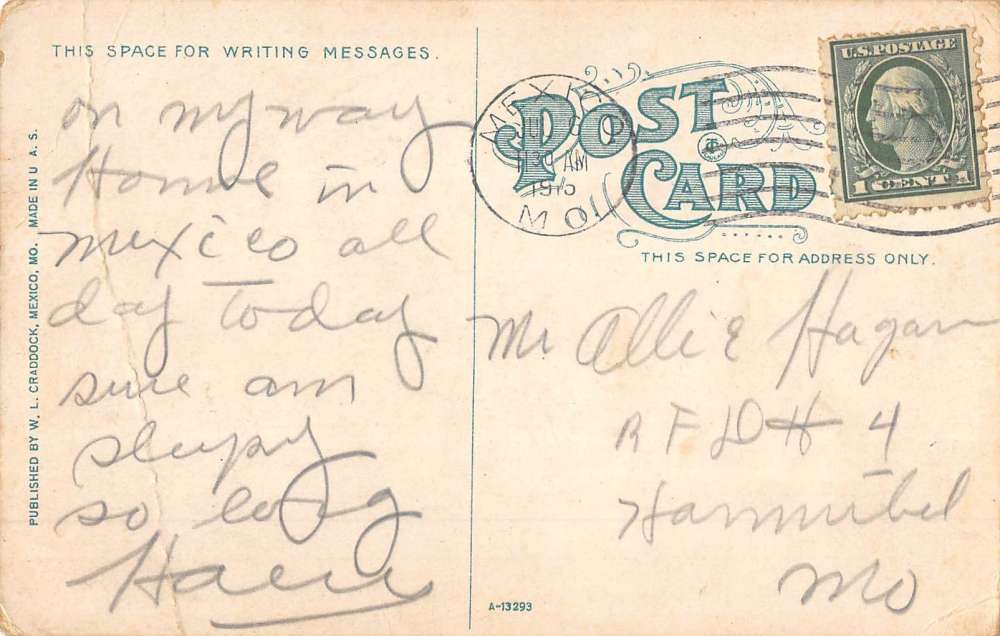 THIS SPACE FOR WRITING MESSAGES.
on my way
Home in
Mexico all
day today
sure am
sleepy
so long
PUBLISHED BY W. L. CRADDOCK, MEXICO, MO. MADE IN U. S. A.
POST
CARD
MEXICO
AM
MO
U.S. POSTAGE
1 CENT 1
THIS SPACE FOR ADDRESS ONLY.
Mr Allie Hagan
R F D # 4
Hannibal
Mo
A-13293